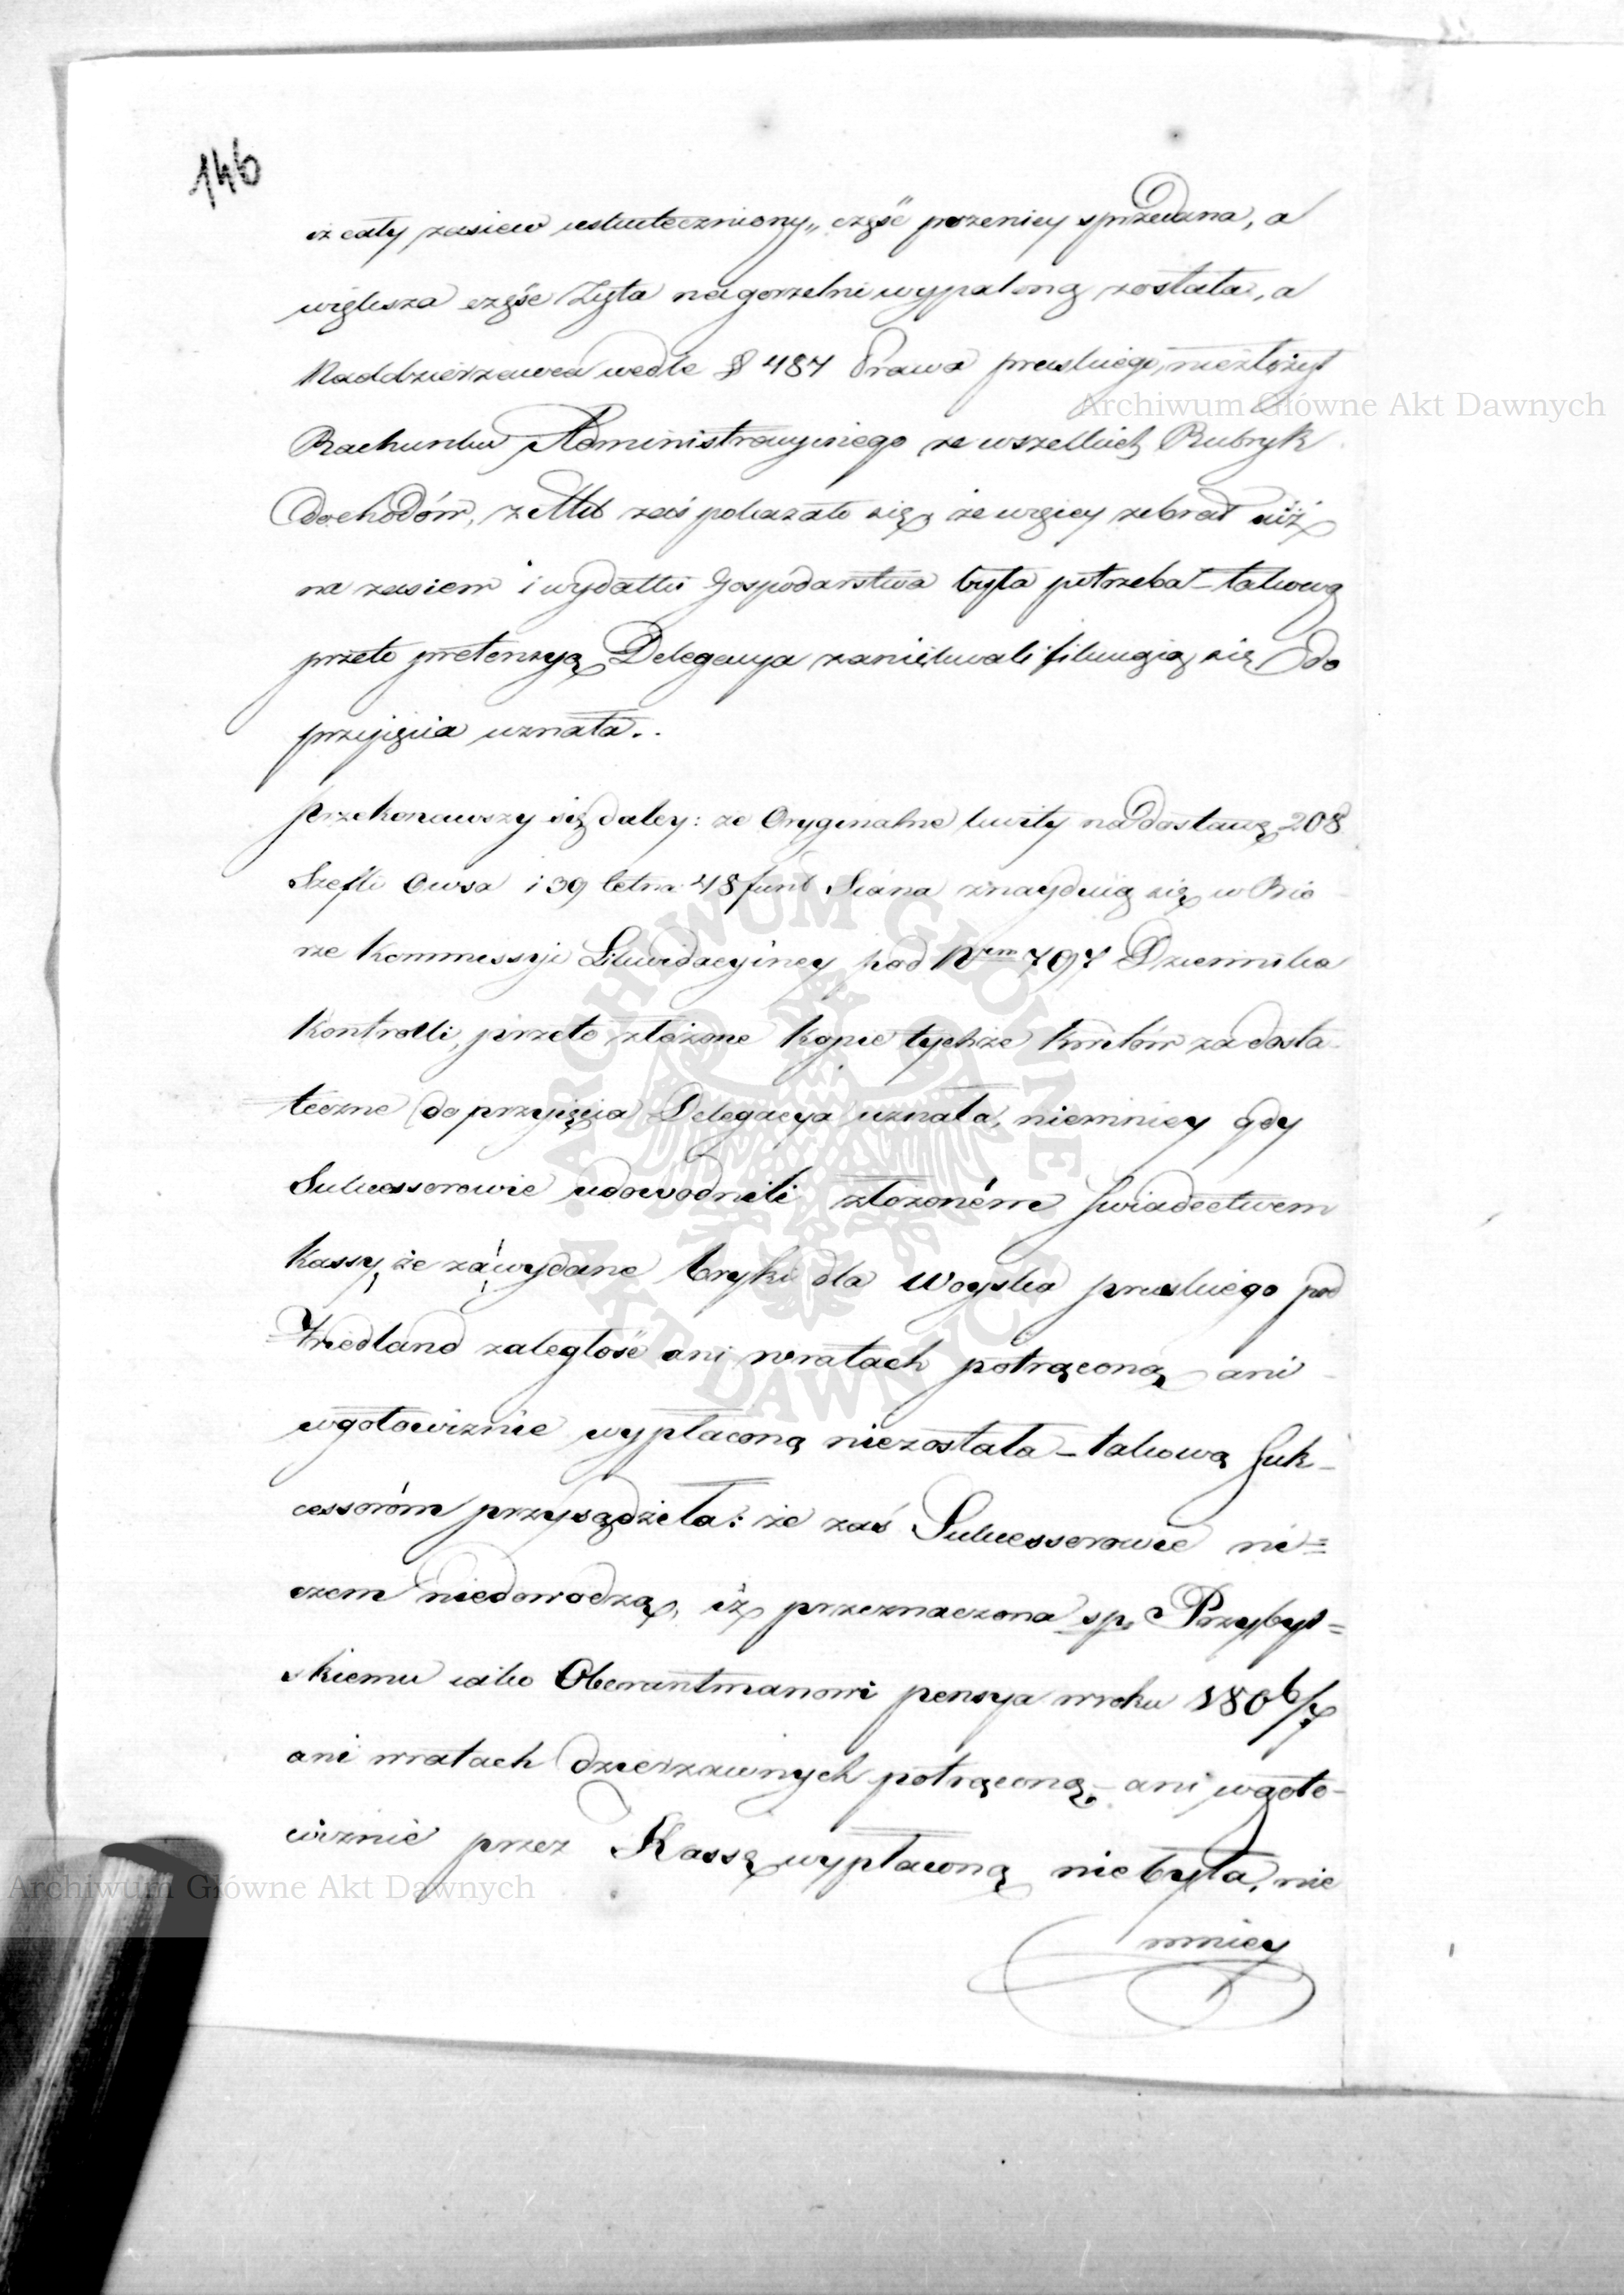 146
iż cały zasiew uskuteczniony, część pszenicy sprzedana, a
większa część Żyta na gorzelni wypaloną została, a
Naddzierzawca wedle § 487 Prawa pruskiego, niezłożył
Rachunku Administracyinego ze wszelkich Rubryk
dochodów, z Akt zaś pokazało się, że więcey zebrał niż
na zasiew i wydatki Gospodarstwa była potrzeba – takową
przeto pretensyą Delegacya za niekwalifikuiącą się do
przyięcia uznała.
Przekonawszy się daley: że Oryginalne kwity na dostawę 208
Szefli Owsa i 39 Cetna: 48 funt Siana znayduią się w Bió
rze Kommissyi Likwidacyiney pod Nrem 797 Dziennika
Kontrolli, przeto złożone Kopie tychże Kwitów za dosta
teczne do przyięcia Delegacya uznała, niemniey gdy
Sukcessorowie udowodnili złożoném Swiadectwem
Kassy, że za wydane bryki dla Woyska pruskiego pod
Friedland zaległość ani w ratach potrąconą, ani
w gotowiznie wypłaconą niezostała – takową Suk-
cessoróm przysądziła: że zaś Sukcessorowie ni=
czem niedowodzą, iż przeznaczona sp. Przybyl=
skiemu iako Oberamtmanowi pensya w roku 1806/7
ani w ratach dzierzawnych potrąconą, – ani w goto-
wiznie przez Kassę wypłaconą nie była, nie
mniey
Archiwum Główne Akt Dawnych
Archiwum Główne Akt Dawnych
ARCHIWUM GŁÓWNE AKT DAWNYCH